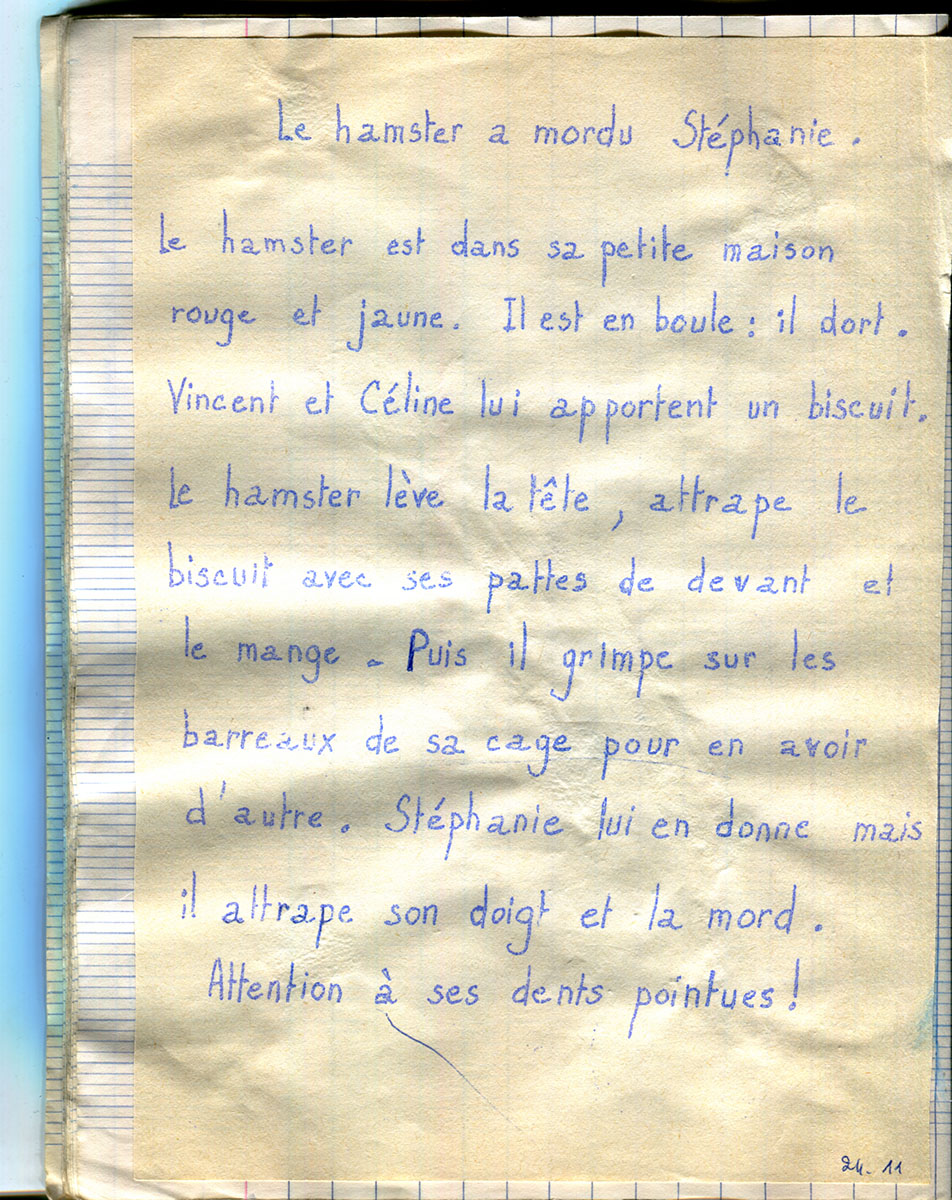 Le hamster a mordu Stéphanie.
Le hamster est dans sa petite maison
rouge et jaune. Il est en boule : il dort.
Vincent et Céline lui apportent un biscuit.
Le hamster lève la tête, attrape le
biscuit avec ses pattes de devant et
le mange. Puis il grimpe sur les
barreaux de sa cage pour en avoir
d'autre. Stéphanie lui en donne mais
il attrape son doigt et la mord.
Attention à ses dents pointues !
24. 11